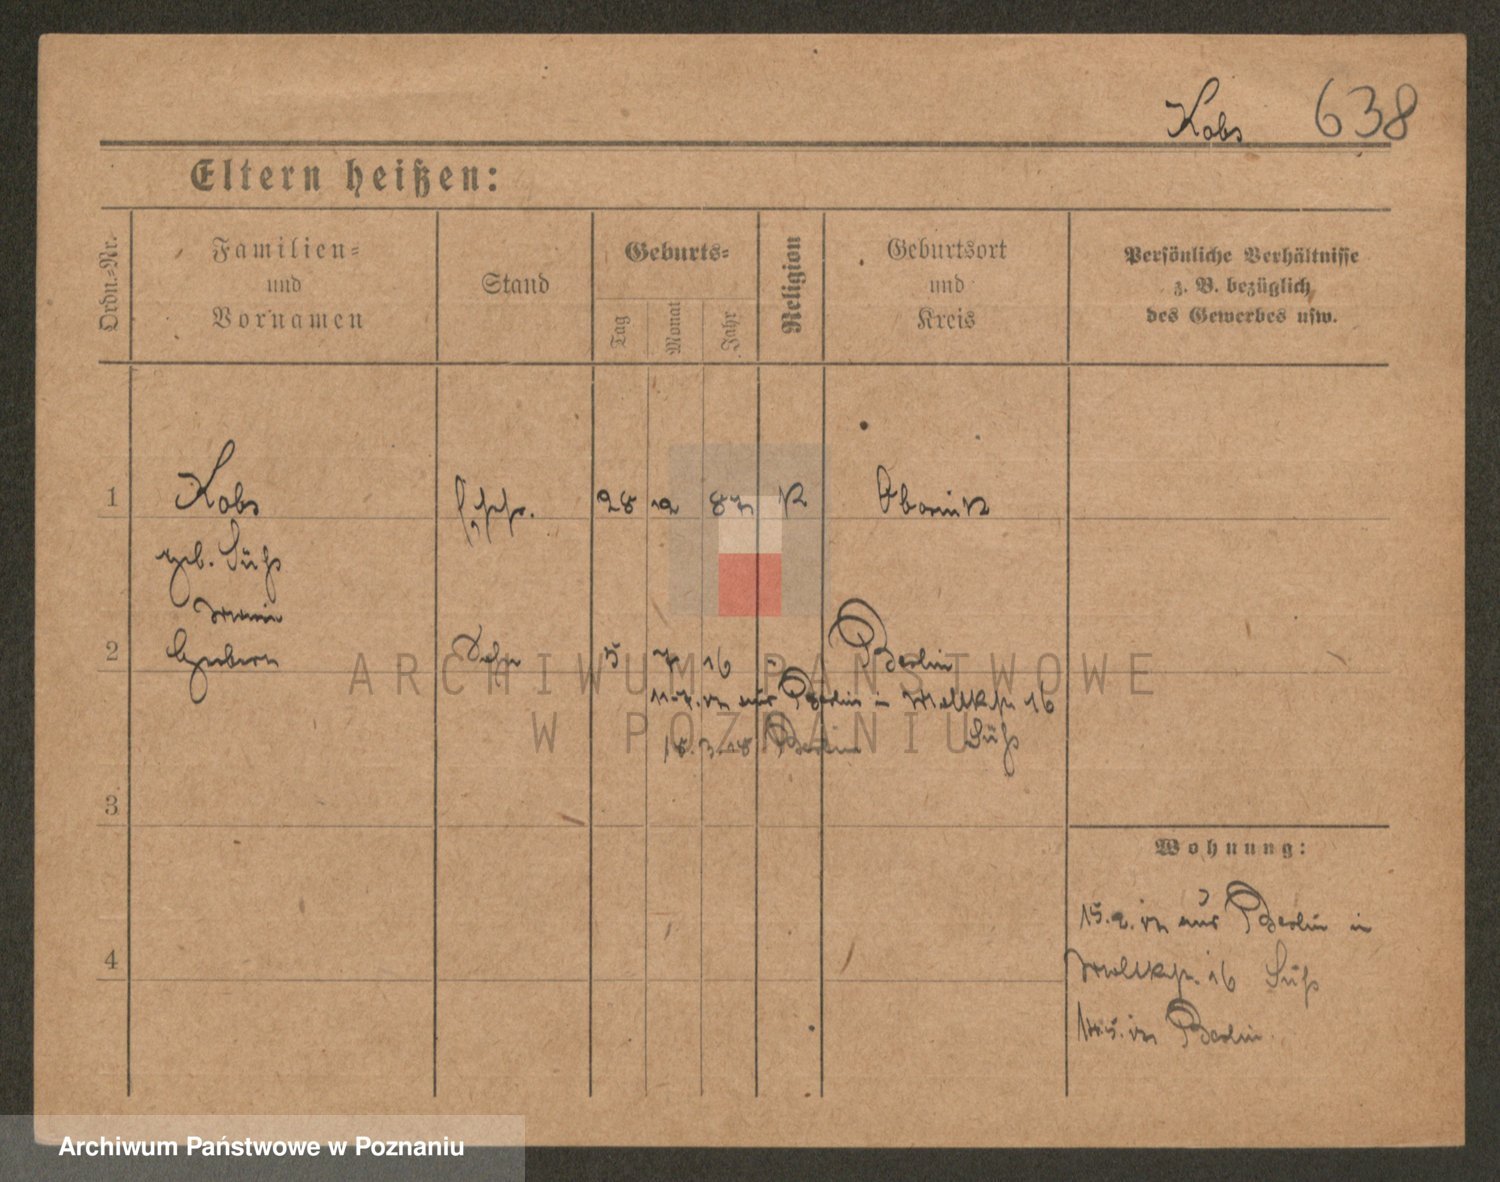 Kobs 638
Eltern heißen:
Ordn.-Nr.
Familien-
und
Vornamen
Stand
Geburts-
Tag
Monat
Jahr
Religion
Geburtsort
und
Kreis
Persönliche Verhältnisse
z. B. bezüglich
des Gewerbes usw.
1 Kobs 28 12 87 K Obornik
geb. Süß
2 Sohn 5 7 16 Berlin
17 aus Berlin in 16
18.3.18 Berlin Süß
3
Wohnung:
15.2.17 aus Berlin in
16 Süß
4
5.17 Berlin.
ARCHIWUM PAŃSTWOWE
W POZNANIU
Archiwum Państwowe w Poznaniu